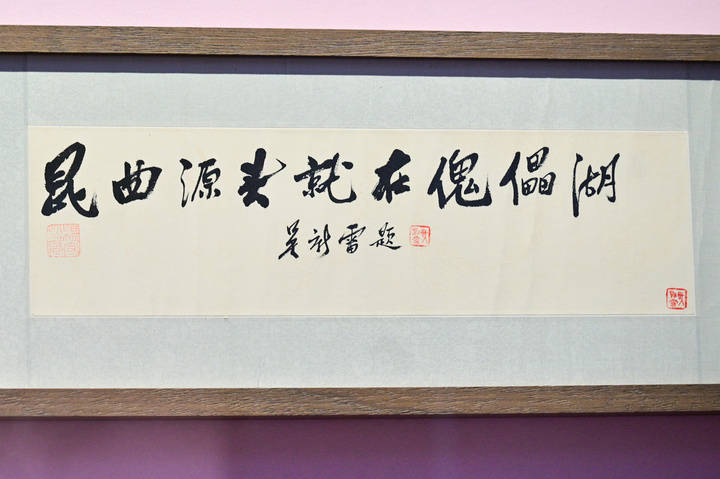 昆曲源头就在傀儡湖
吴新雷题